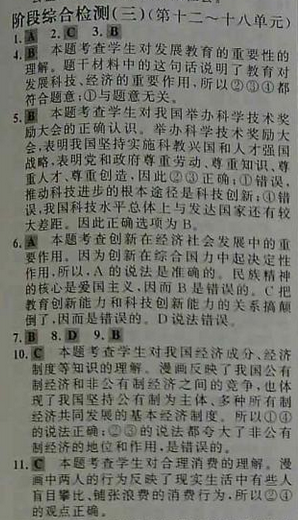 阶段综合检测(三)(第十二～十八单元)
1.A 2.C 3.B
4.B 本题考查学生对发展教育的重要性的
理解。题干材料中的这句话说明了教育对
发展科技、经济的重要作用,所以②③④都
符合题意;①与题意无关。
5.B 本题考查学生对我国举办科学技术奖
励大会的正确认识。举办科学技术奖励大
会,表明我国坚持实施科教兴国和人才强国
战略,表明党和政府尊重劳动、尊重知识、尊
重人才、尊重创造,因此②③正确;①错误,
推动科技进步的根本途径是科技创新;④错
误,我国科技水平总体上与发达国家还有较
大差距。因此正确选项为B。
6.A 本题考查创新在经济社会发展中的重
要作用。因为创新在综合国力中起决定性
作用,所以,A的说法是准确的。民族精神
的核心是爱国主义,因而B是错误的。C把
教育创新能力和科技创新能力的关系搞颠
倒了,因而是错误的。D说法错误。
7.B 8.D 9.B
10.C 本题考查学生对我国经济成分、经济
制度等知识的理解。漫画反映了我国公有
制经济和非公有制经济之间的竞争,也体
现了我国坚持公有制为主体、多种所有制
经济共同发展的基本经济制度。所以①④
的说法正确;②③的说法都夸大了非公有
制经济的地位和作用,是错误的。
11.C 本题考查学生对合理消费的理解。漫
画中两人的行为反映了现实生活中有些人
盲目攀比、铺张浪费的消费行为,所以②④
的观点正确。